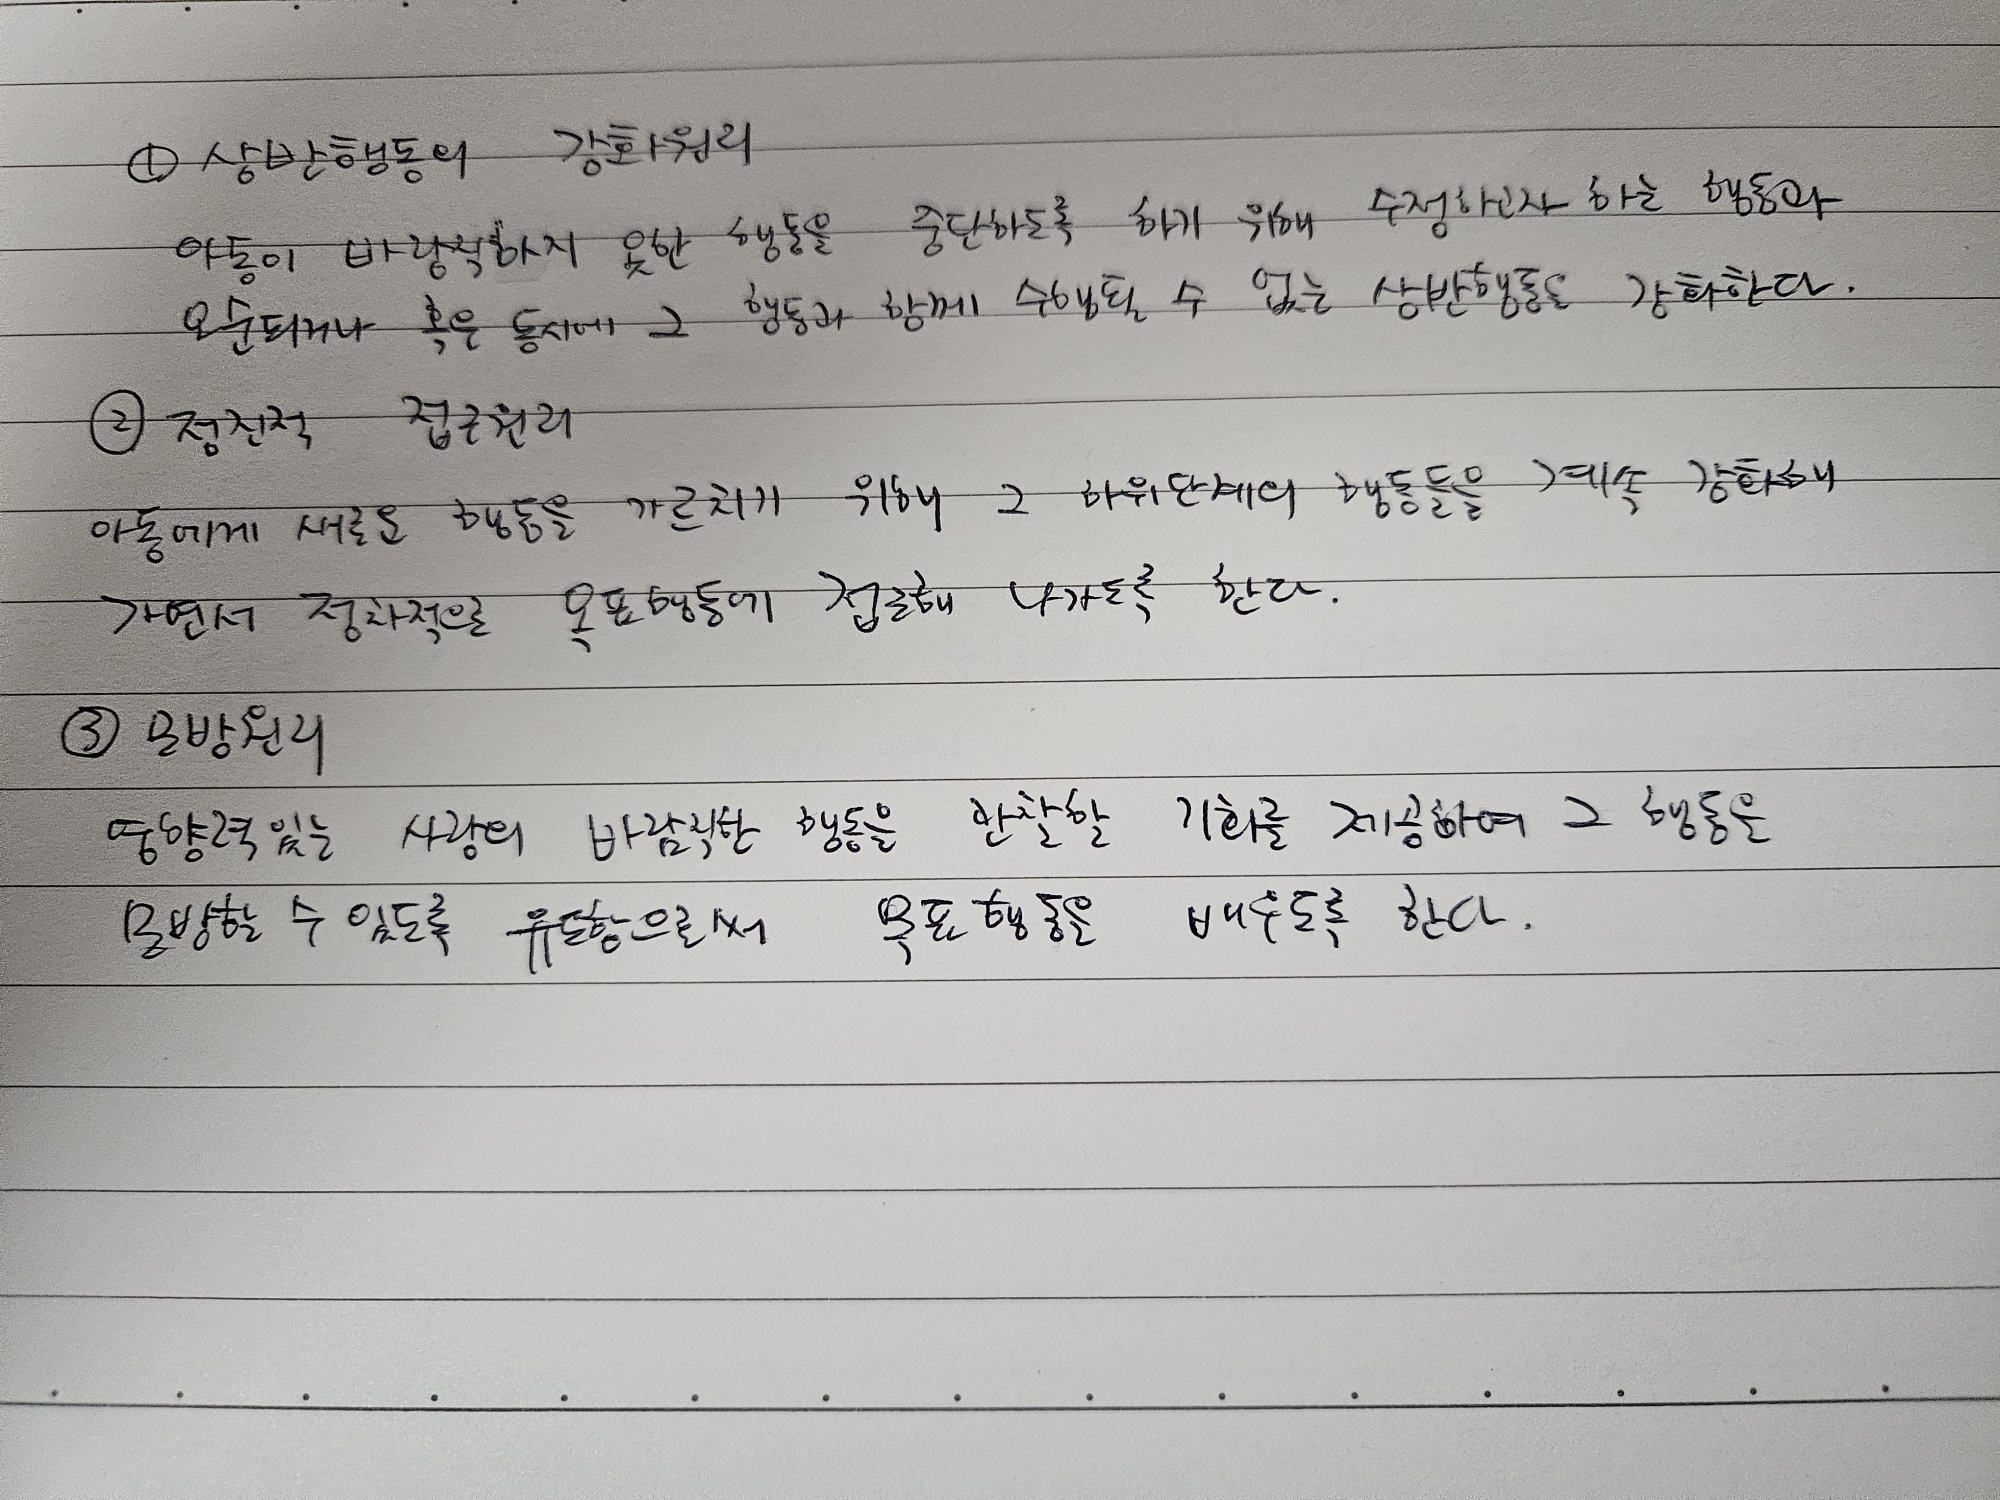 ① 상반행동의 강화원리
아동이 바랑직하지 못한 행동을 중단하도록 하기 위해 수정하고자 하는 행동과
모순되거나 혹은 동시에 그 행동과 함께 수행될 수 없는 상반행동을 강화한다.
② 점진적 접근원리
아동에게 새로운 행동을 가르치기 위해 그 하위단계의 행동들을 계속 강화해
가면서 점차적으로 목표행동에 접근해 나가도록 한다.
③ 모방원리
영향력있는 사람의 바람직한 행동을 관찰할 기회를 제공하여 그 행동을
모방할 수 있도록 유도함으로써 목표행동을 배우도록 한다.